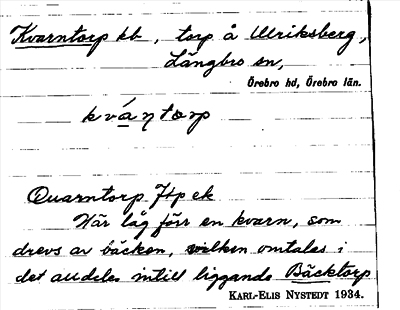 Kvarntorp kb, torp å Ulriksberg,
Längbro sn,
Örebro hd, Örebro län.
kváṇtorp
Quarntorp Jtp ek
Här låg förr en kvarn, som
drevs av bäcken, vilken omtales i
det alldeles intill liggande Bäcktorp
KARL-ELIS NYSTEDT 1934.